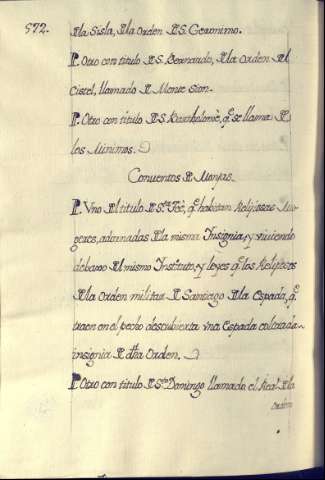 572.
dla Sisla, dla Orden d S. Geronimo.
P. Otro con titulo d S. Bernardo, dla Orden del
Cistel, llamado d Monte Sion.
P. Otro con titulo d S. Bartholomè, q̃ se llama d
los Minimos.
Conventos d Monjas.
P. Vno del titulo d Sta Feè, q̃ habitan Religiosas Mu-
geres, adornadas dla misma Insignia, y viviendo
debaxo del mismo Instituto, y leyes q̃ los Religiosos
dla Orden militar d Santiago dla Espada, q̃
traen en el pecho descubierta vna Espada colorada
insignia d dha Orden.
P. Otro con titulo d Sto Domingo llamado el Real dla
Orden